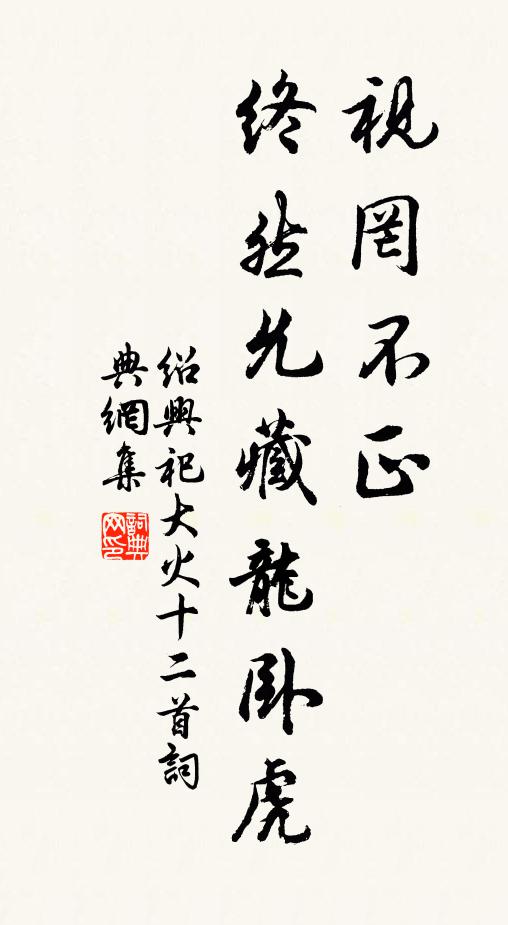 視罔不正
終然允藏龍卧虎
紹興祀大火十二首詞
典網集
詞典
网印